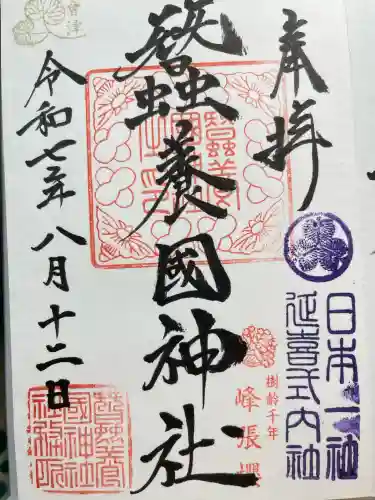 奉拝
日本一社
延喜式内社
樹齢千年
峰張桜
蠶養國神社
令和七年八月十二日
會津
蠶養國神社務所